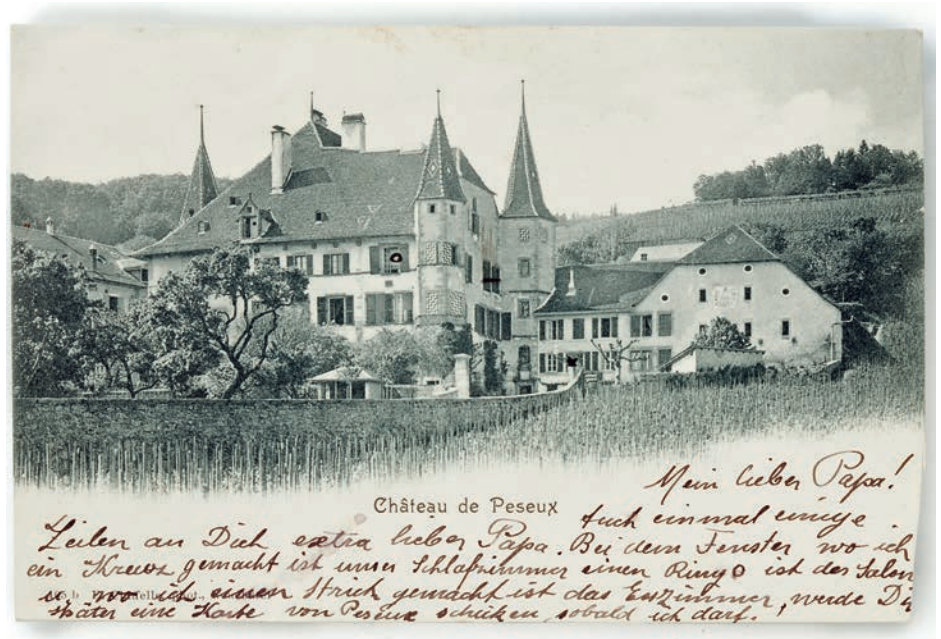 Mein lieber Papa!
Château de Peseux
Auch einmal einige
Zeilen an Dich extra lieber Papa. Bei dem Fenster wo ich
ein Kreuz gemacht ist unser Schlafzimmer einen Ring O ist der Salon
u. wo ich einen Strich gemacht ist das Esszimmer, werde Dir
später eine Karte von Peseux schicken, sobald ich darf.